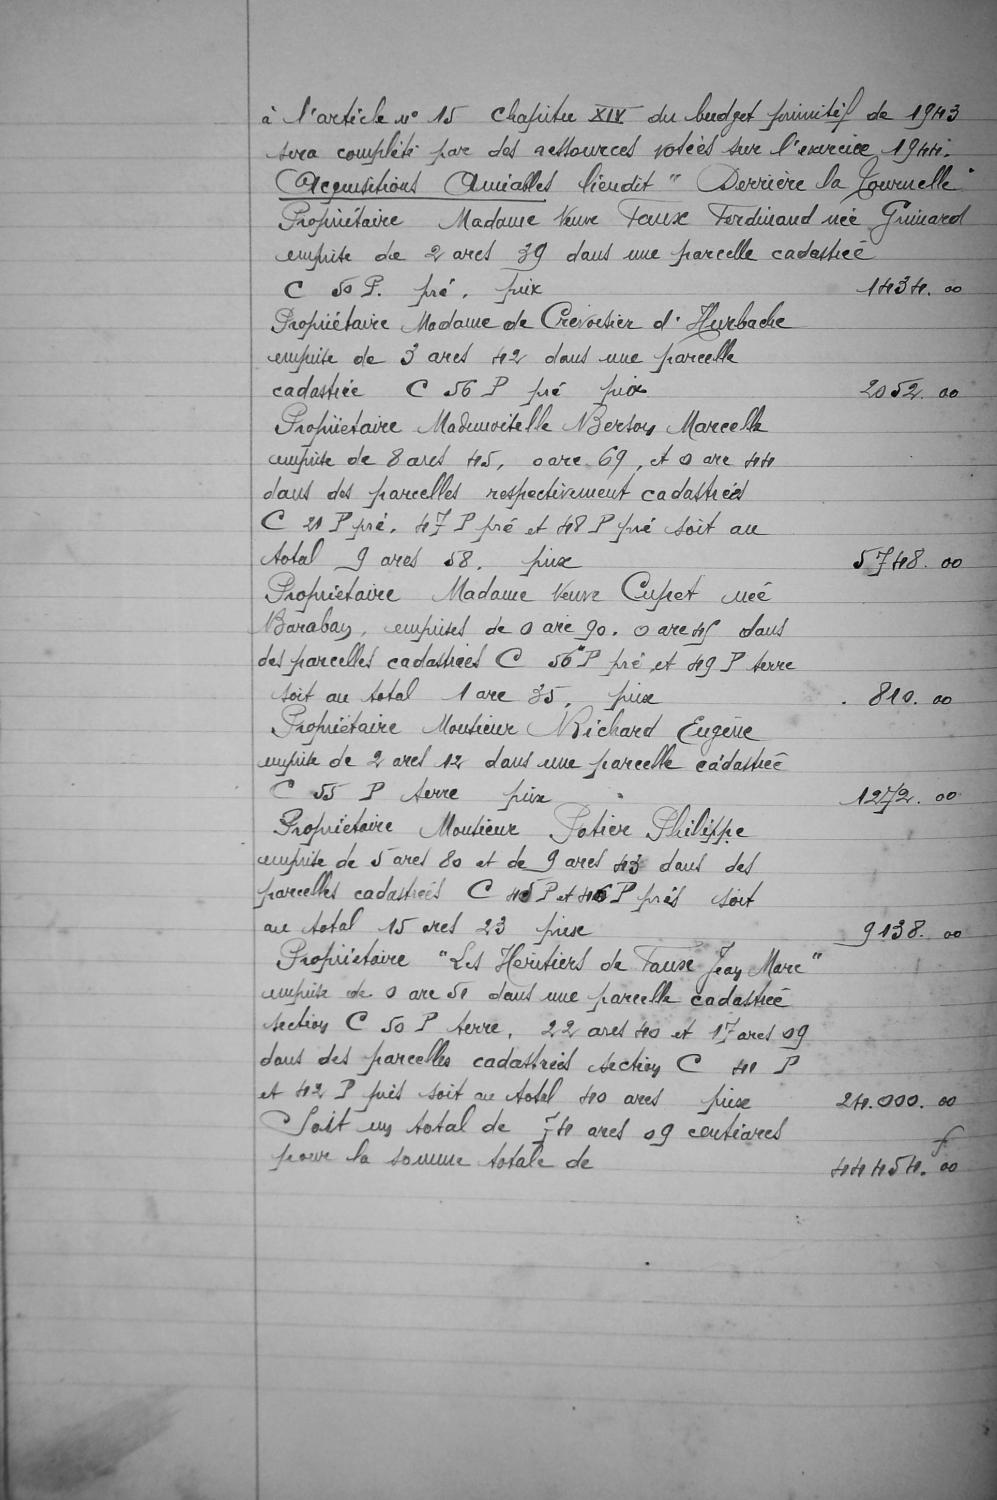 à l'article n° 15 Chapitre XIV du budget primitif de 1943
sera complété par des ressources votées sur l'exercice 1944.
Acquisitions Amiables lieudit " Derrière la Tournelle "
Propriétaire Madame Veuve Faux Ferdinand née Guinard
emprise de 2 ares 39 dans une parcelle cadastrée
C 50 P. pré, prix 1434.00
Propriétaire Madame de Crévoisier d'Hurbache
emprise de 3 ares 42 dans une parcelle
cadastrée C 56 P pré prix 2052.00
Propriétaire Mademoiselle Berson Marcelle
emprise de 8 ares 45, 0 are 69, et 0 are 44
dans des parcelles respectivement cadastrées
C 21 P pré, 47 P pré et 48 P pré soit au
total 9 ares 58, prix 5748.00
Propriétaire Madame Veuve Cupet née
Baraban, emprises de 0 are 90. 0 are 45 dans
des parcelles cadastrées C 56 P pré, et 49 P terre
soit au total 1 are 35, prix 810.00
Propriétaire Monsieur Richard Eugène
emprise de 2 ares 12 dans une parcelle cadastrée
C 55 P terre prix 1272.00
Propriétaire Monsieur Potier Philippe
emprise de 5 ares 80 et de 9 ares 43 dans des
parcelles cadastrées C 45 P et 46 P prés soit
au total 15 ares 23 prix 9138.00
Propriétaire "Les Héritiers de Faux Jean Marc"
emprise de 0 are 51 dans une parcelle cadastrée
section C 50 P terre, 22 ares 40 et 17 ares 09
dans des parcelles cadastrées section C 41 P
et 42 P prés soit au total 40 ares prix 24.000.00
Soit un total de 74 ares 09 centiares
pour la somme totale de 44454.f00